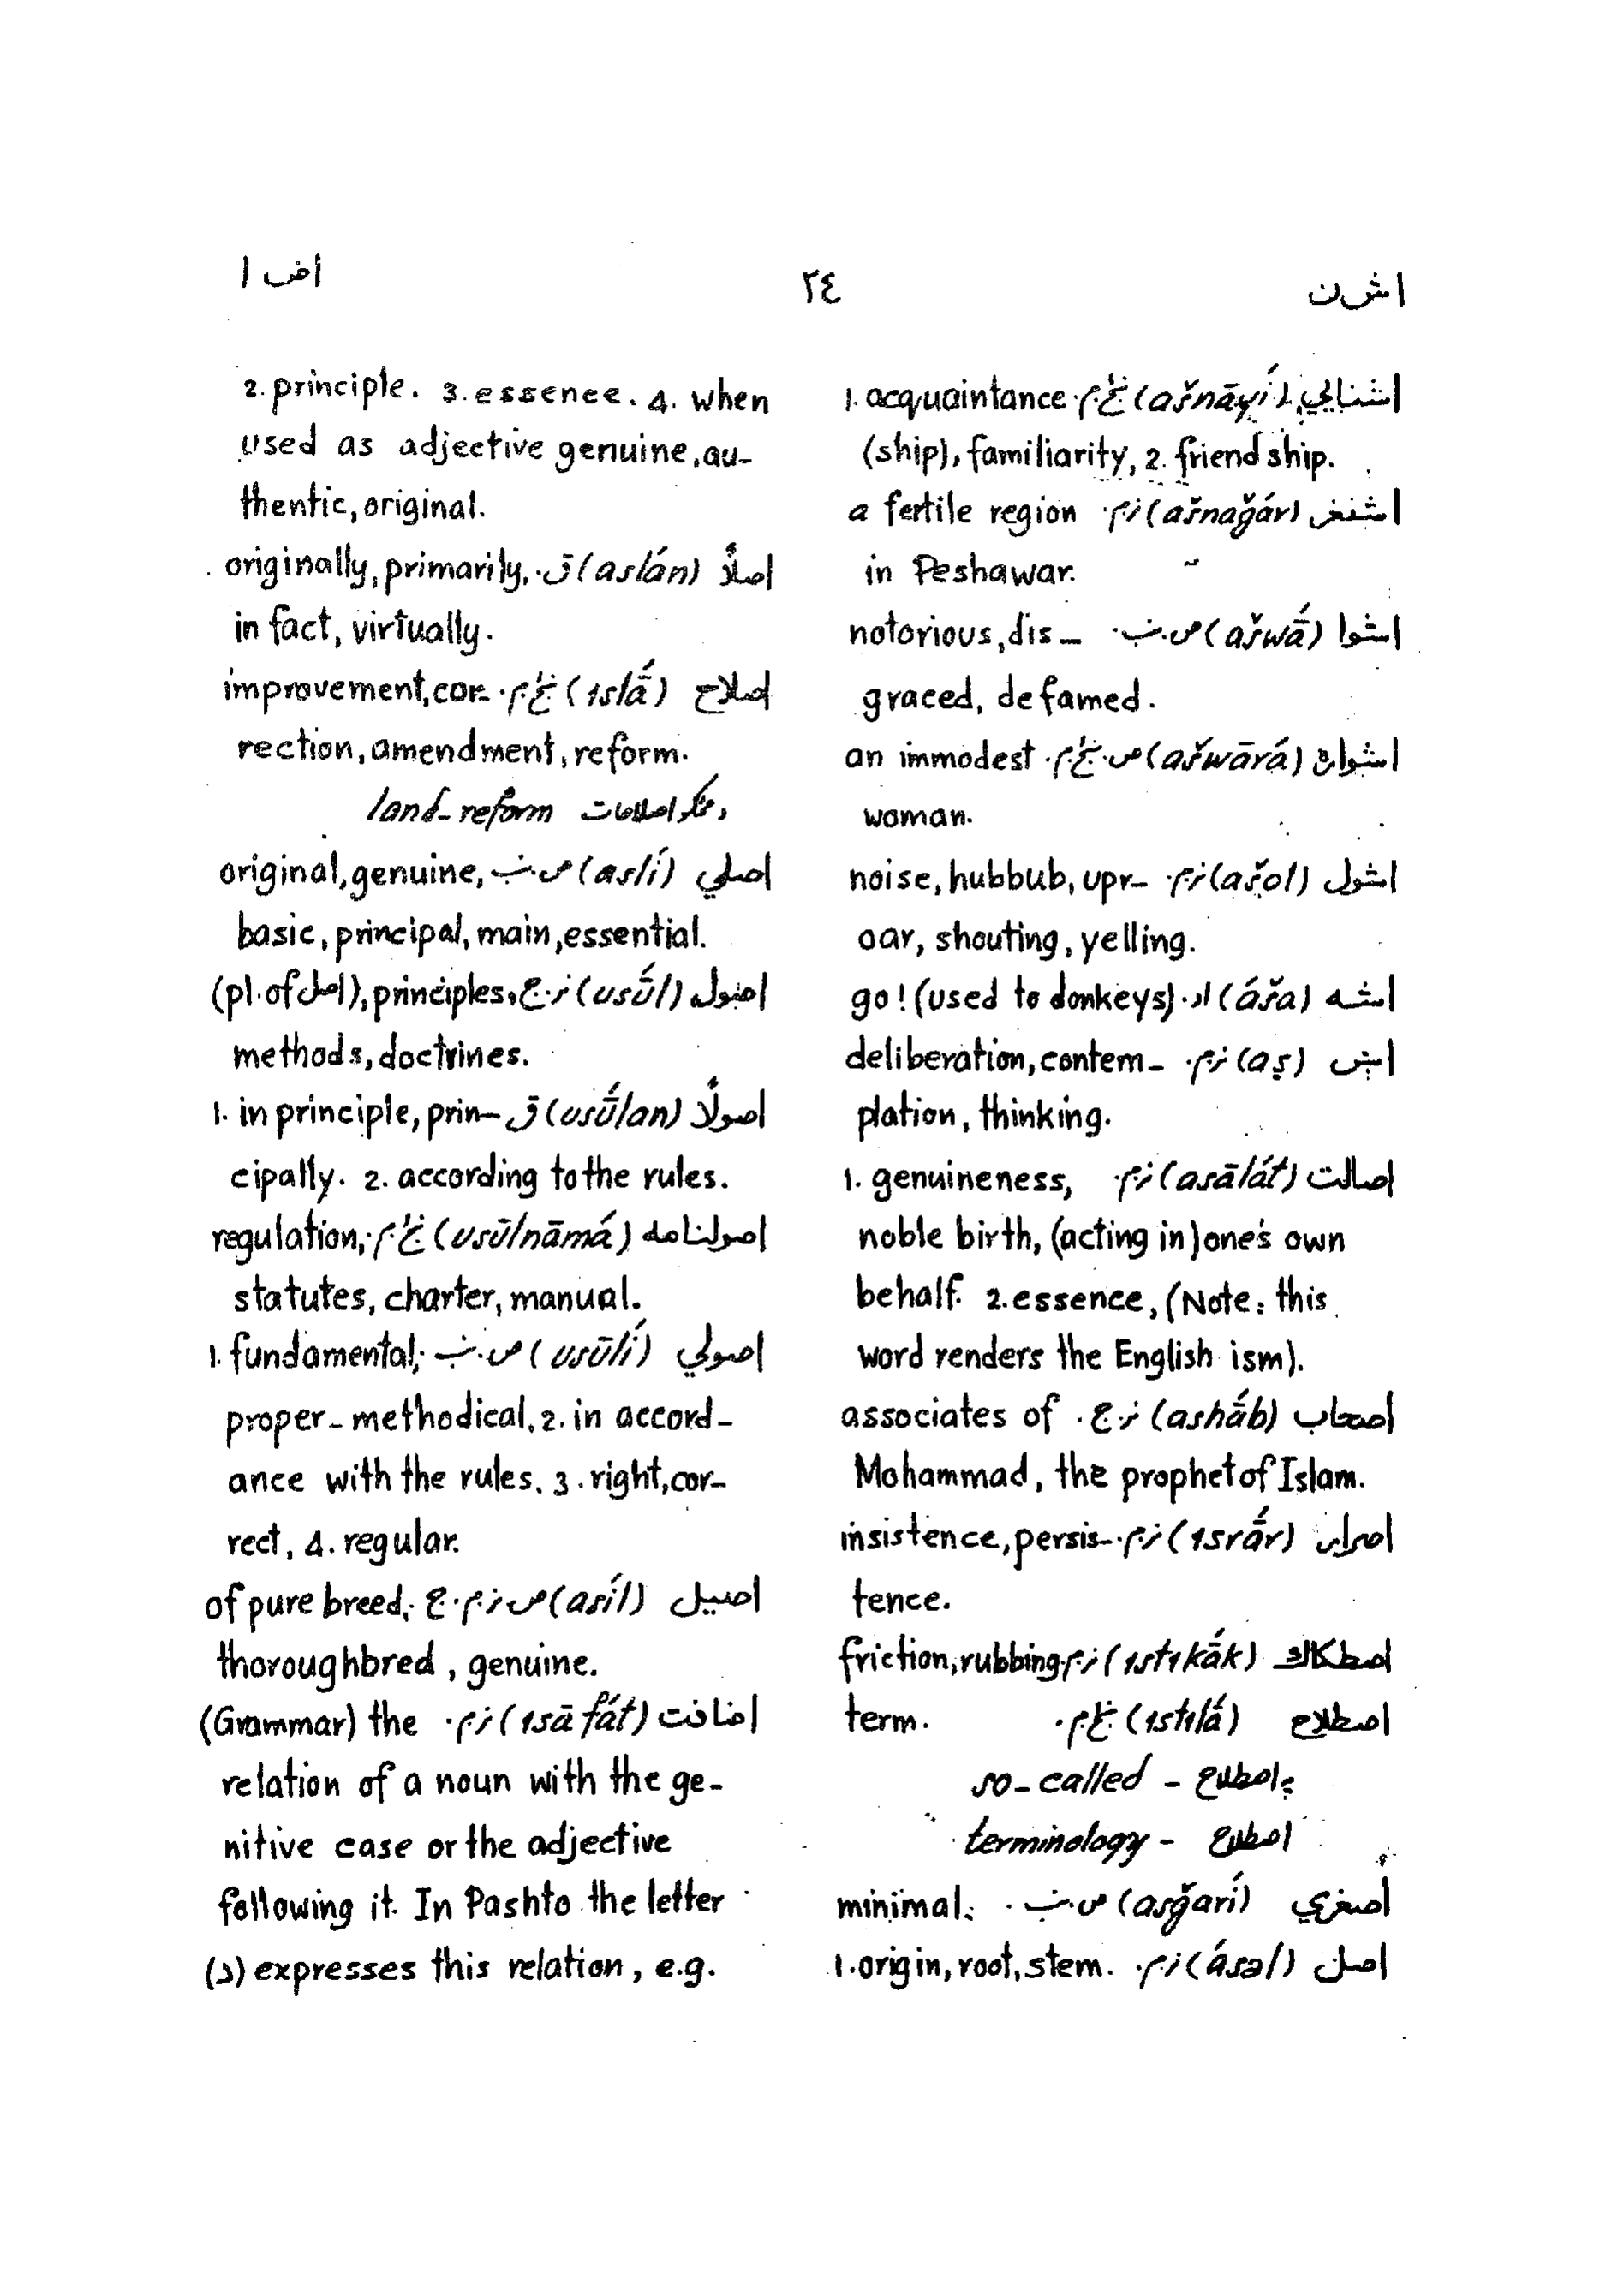 اش ن
٢٤
اض ا
اشنايي (ašnāyí) غ.م. 1. acquaintance
(ship), familiarity, 2. friendship.
اشنغر (ašnağár) ن.م. a fertile region
in Peshawar.
اشوا (ašwā́) ص.ب. notorious, dis-
graced, defamed.
(ašwārá) ص.غ.م. an immodest
woman.
اشول (ašol) ن.م. noise, hubbub, upr-
oar, shouting, yelling.
اشه (áša) اد. go! (used to donkeys)
اښ (aṣ) ن.م. deliberation, contem-
plation, thinking.
اصالت (asālát) ن.م. 1. genuineness,
noble birth, (acting in) one's own
behalf. 2. essence, (Note: this
word renders the English ism).
اصحاب (ashā́b) ن.ج. associates of
Mohammad, the prophet of Islam.
اصرار (ısrā́r) ن.م. insistence, persis-
tence.
اصطكاك (ıstıkā́k) ن.م. friction, rubbing
اصطلاح (ıstılā́) غ.م. term.
په اصطلاح - so-called
اصطلاح - terminology
اصغري (asğarí) ص.ب. minimal.
اصل (ásəl) ن.م. 1. origin, root, stem.
2. principle. 3. essence. 4. when
used as adjective genuine, au-
thentic, original.
اصلاً (aslán) ق. originally, primarily,
in fact, virtually.
اصلاح (ıslā́) غ.م. improvement, cor-
rection, amendment, reform.
اصلاحات land-reform
اصلي (aslí) ص.ب. original, genuine,
basic, principal, main, essential.
اصول (usū́l) ن.ج. (pl. of اصل), principles,
methods, doctrines.
اصولاً (usū́lan) ق 1. in principle, prin-
cipally. 2. according to the rules.
اصولنامه (usūlnāmá) غ.م. regulation,
statutes, charter, manual.
اصولي (usūlí) ص.ب. 1. fundamental,
proper- methodical, 2. in accord-
ance with the rules. 3. right, cor-
rect, 4. regular.
اصيل (asíl) ص ن.م.ج of pure breed,
thoroughbred, genuine.
اضافت (ısāfát) ن.م. (Grammar) the
relation of a noun with the ge-
nitive case or the adjective
following it. In Pashto the letter
(د) expresses this relation, e.g.